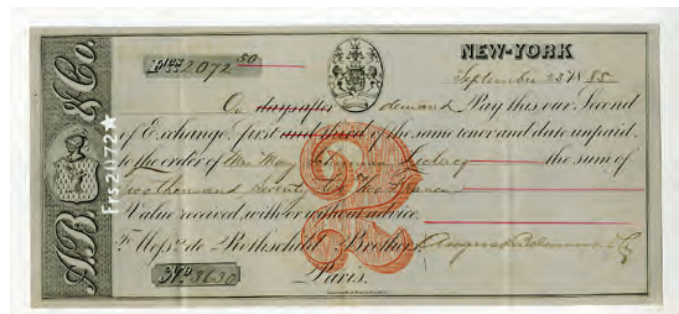 NEW-YORK
Frcs 2,072 50
September 23rd 1885
On days after demand Pay this our Second
of Exchange, first and third of the same tenor and date unpaid.
to the order of Mrs May Leclercq the sum of
Two thousand Seventy two Francs
Value received, with or without advice.
To Messrs de Rothschild Brothers August Belmont & Co
No 3630 Paris.
A.B. & Co.
Frs2072★
2